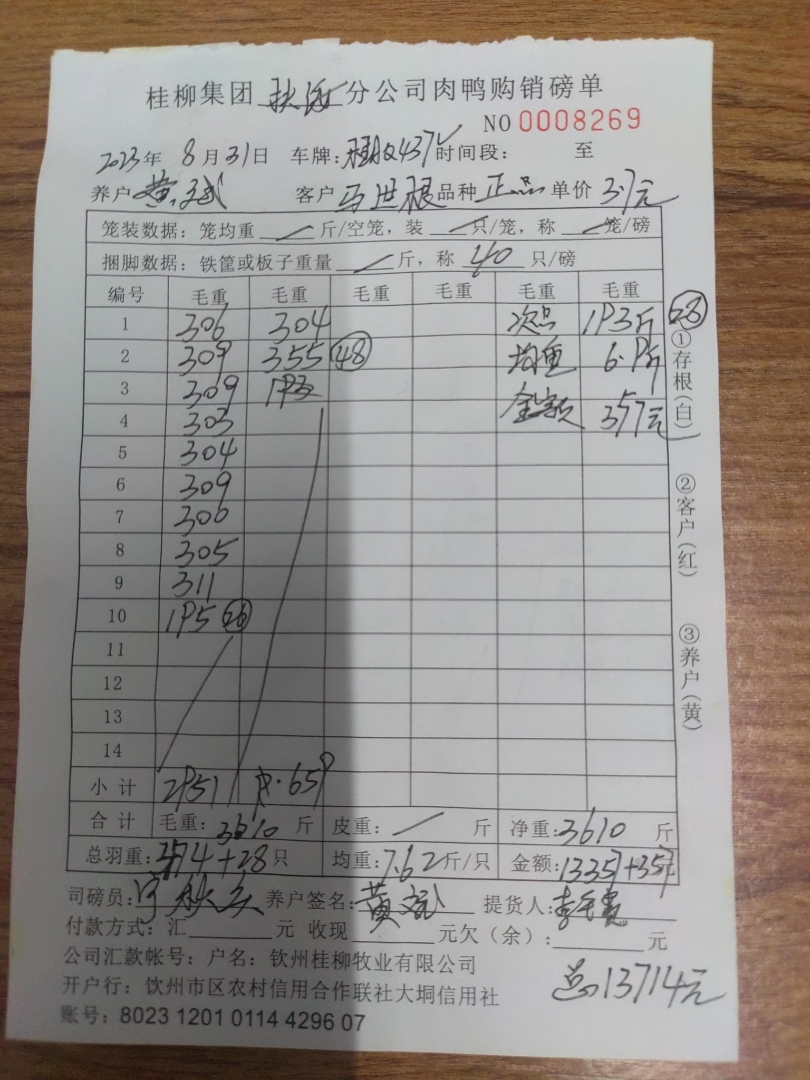 桂柳集团 分公司肉鸭购销磅单
NO 0008269
2023年 8月31日 车牌: 437 时间段: 至
养户 黄文斌 客户 马世根 品种 正品 单价 3.7元
笼装数据: 笼均重 斤/空笼, 装 只/笼, 称 笼/磅
捆脚数据: 铁筐或板子重量 斤, 称 40 只/磅
编号 毛重 毛重 毛重 毛重 毛重 毛重
1 306 304 次品 193斤 28
2 309 355 48 均重 6.9斤
3 309 193 金额 357元
4 303
5 304
6 309
7 300
8 305
9 311
10 195 26
11
12
13
14
小计 2951 659
合计 毛重: 3610 斤 皮重: 斤 净重: 3610 斤
总羽重: 474+28 只 均重: 7.62 斤/只 金额: 13357+357
司磅员: 养户签名: 黄文斌 提货人:
付款方式: 汇 元 收现 元欠(余): 元
公司汇款帐号: 户名: 钦州桂柳牧业有限公司
开户行: 钦州市区农村信用合作联社大垌信用社
账号: 8023 1201 0114 4296 07
总13714元
①存根(白)
②客户(红)
③养户(黄)